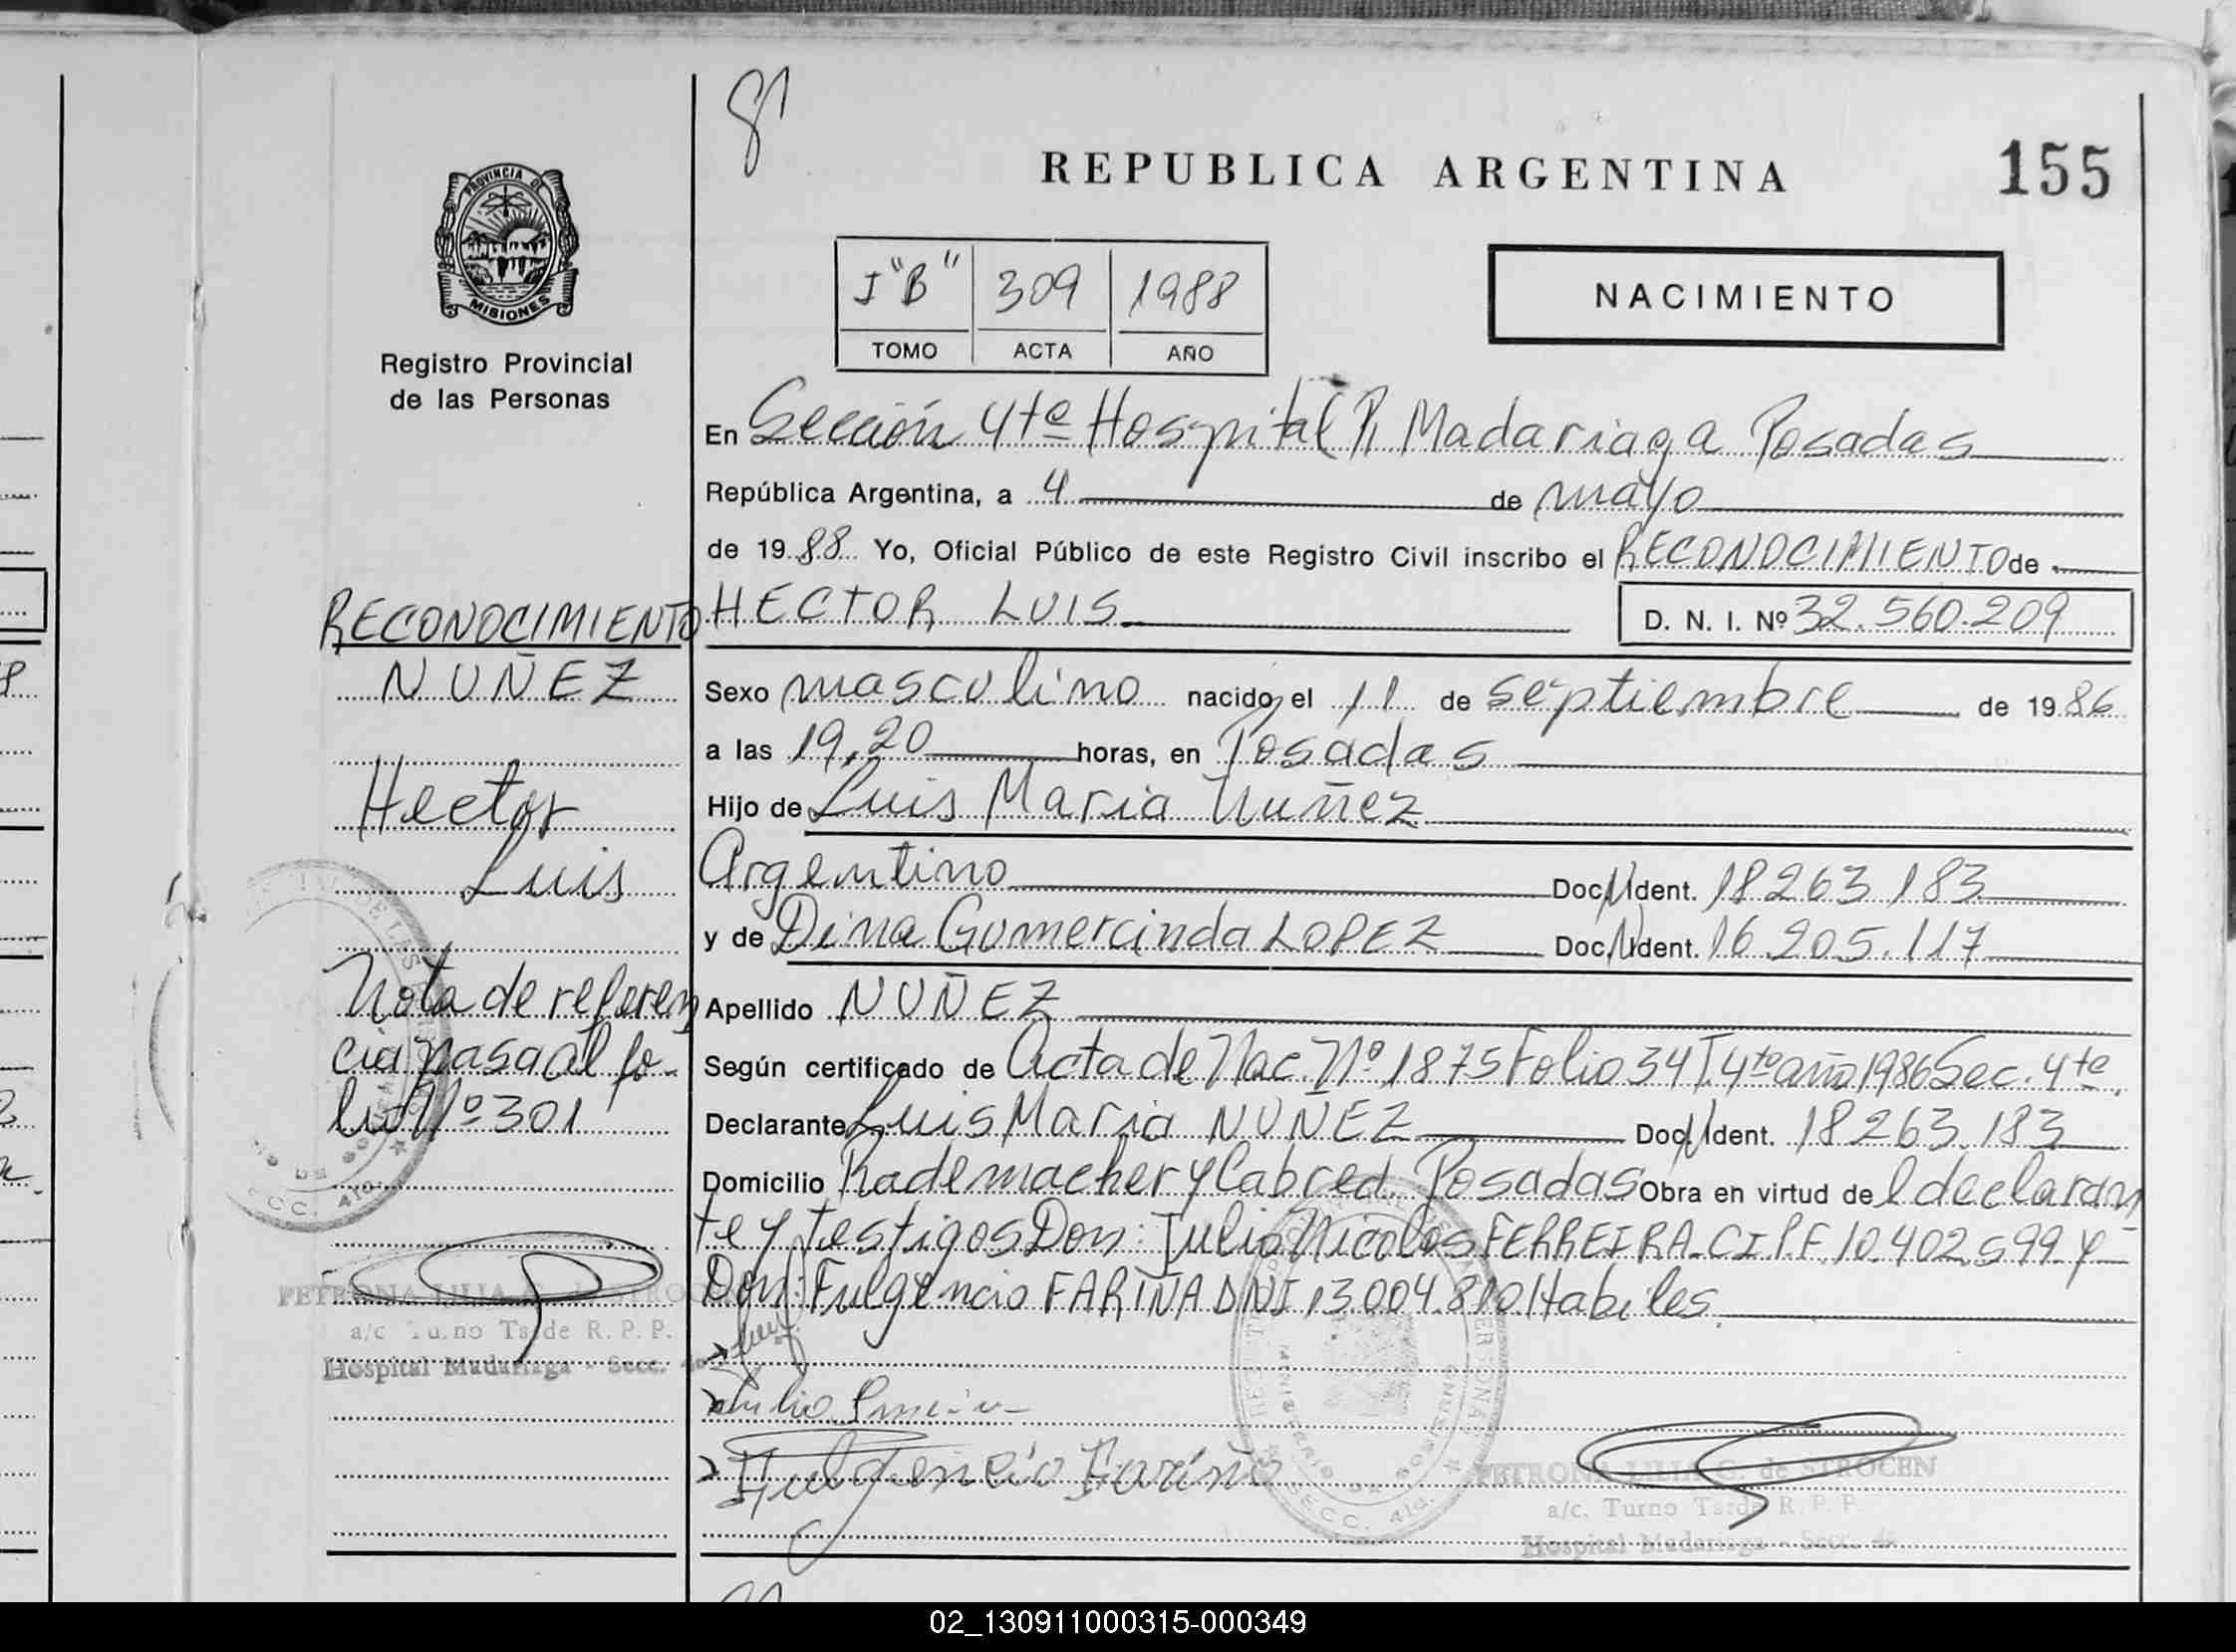 REPUBLICA ARGENTINA
155
PROVINCIA DE
MISIONES
Registro Provincial
de las Personas
I "B" 309 1988
TOMO ACTA AÑO
NACIMIENTO
En Sección 4ta Hospital R. Madariaga Posadas
República Argentina, a 4 de mayo
de 1988 Yo, Oficial Público de este Registro Civil inscribo el RECONOCIMIENTO de
HECTOR LUIS
D. N. I. Nº 32.560.209
Sexo masculino nacido el 11 de septiembre de 1986
a las 19,20 horas, en Posadas
Hijo de Luis Maria Nuñez
Argentino Doc. Ident. 18263.183
y de Dina Gumercinda LOPEZ Doc. Ident. 16.205.117
Apellido NUÑEZ
Según certificado de Acta de Nac. Nº 1875 Folio 34 T. 4to año 1986 Sec. 4ta.
Declarante Luis Maria NUÑEZ Doc. Ident. 18263.183
Domicilio Rademacher y Cabred. Posadas Obra en virtud de l declaran
te y testigos Don: Julio Nicolas FERREIRA C.I.P.F. 10.402.599 y
Don: Fulgencio FARIÑA DNI 13.004.810 Habiles.
Fulgencio Fariña
PETRONA LILIA G. de STROCEN
a/c. Turno Tarde R. P. P.
Hospital Madariaga - Secc. 4a
RECONOCIMIENTO
NUÑEZ
Hector
Luis
Nota de referen
cia pasa al fo-
lio Nº 301
PETRONA LILIA G. de STROCEN
a/c Turno Tarde R. P. P.
Hospital Madariaga - Secc.
02_130911000315-000349